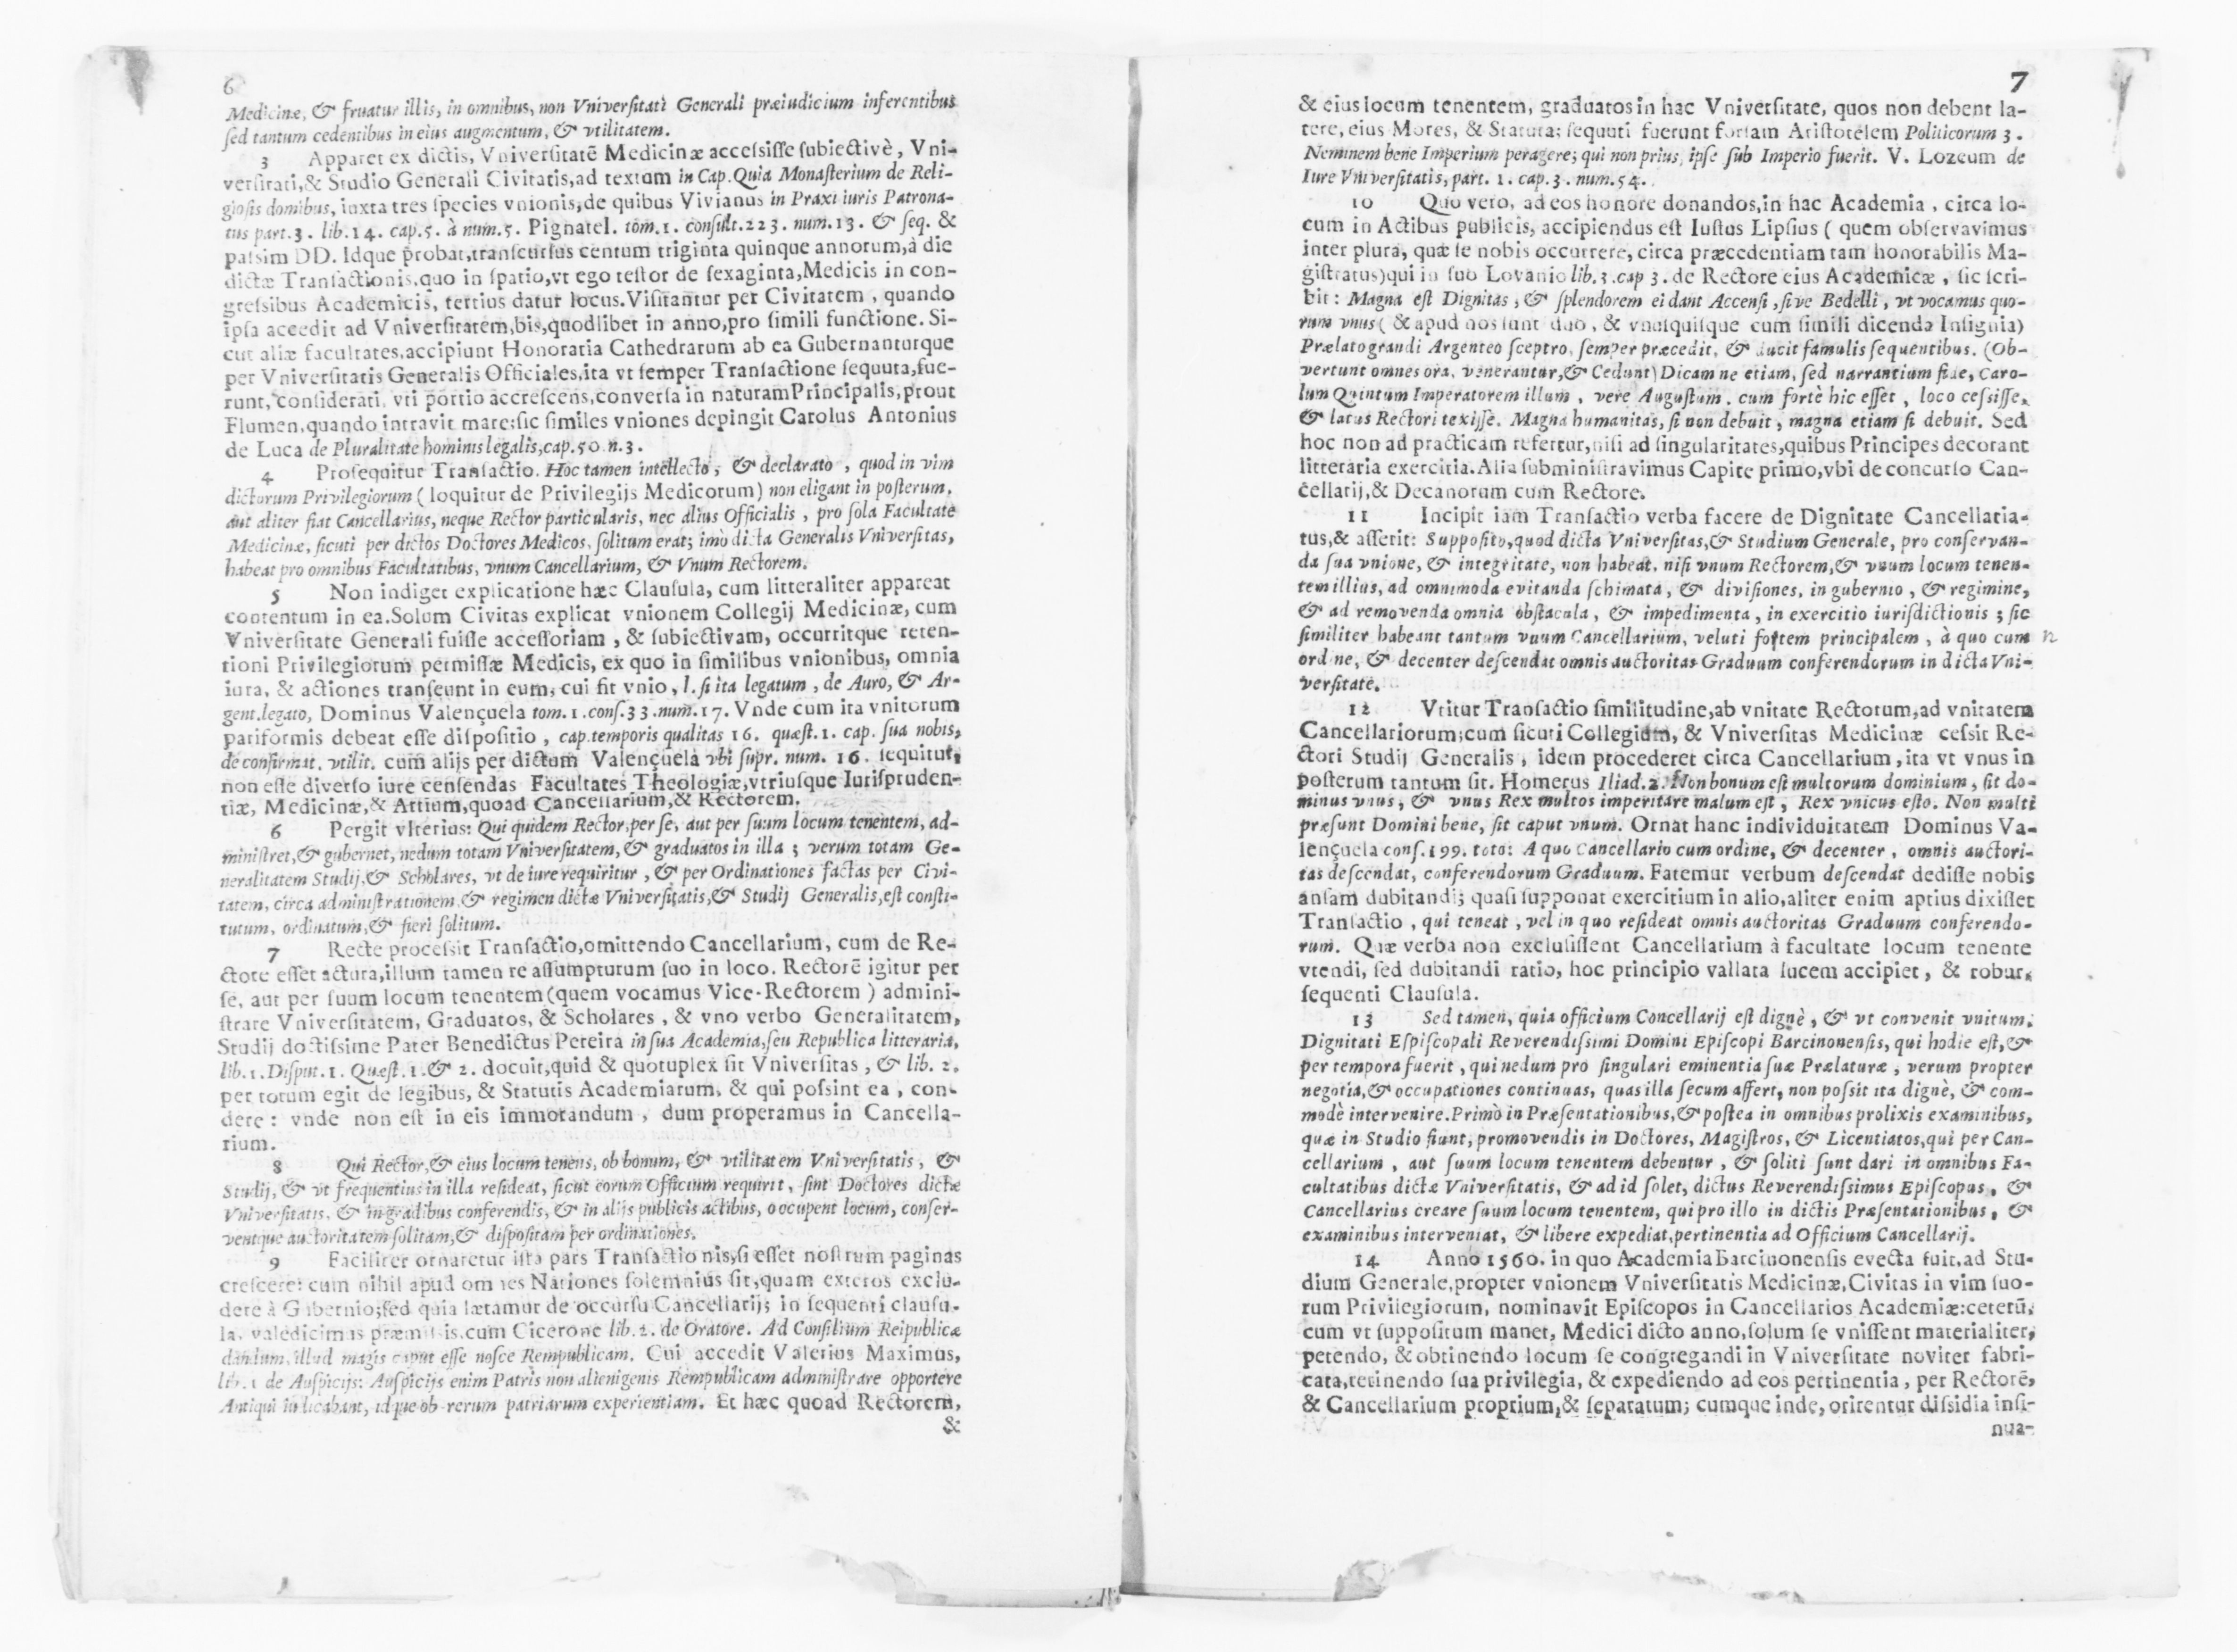 6
Medicinæ, & fruatur illis, in omnibus, non Vniverſitati Generali præiudicium inferentibus
ſed tantum cedentibus in eius augmentum, & vtilitatem.
3 Apparet ex dictis, Vniverſitatē Medicinæ acceſsiſſe ſubiectivè, Vni-
verſitati,& Studio Generali Civitatis,ad textum in Cap.Quia Monaſterium de Reli-
gioſis domibus, iuxta tres ſpecies vnionis,de quibus Vivianus in Praxi iuris Patrona-
tus part.3. lib.14. cap.5. à num.5. Pignatel. tom.1. conſult.223. num.13. & ſeq. &
paſsim DD. Idque probat,tranſcurſus centum triginta quinque annorum,à die
dictæ Tranſactionis,quo in ſpatio,vt ego teſtor de ſexaginta,Medicis in con-
greſsibus Academicis, tertius datur locus.Viſitantur per Civitatem, quando
ipſa accedit ad Vniverſitatem,bis,quodlibet in anno,pro ſimili functione. Si-
cut aliæ facultates,accipiunt Honoraria Cathedrarum ab ea Gubernanturque
per Vniverſitatis Generalis Officiales,ita vt ſemper Tranſactione ſequuta,fue-
runt, conſiderati, vti portio accreſcens,converſa in naturam Principalis,prout
Flumen,quando intravit mare;ſic ſimiles vniones depingit Carolus Antonius
de Luca de Pluralitate hominis legalis,cap.50.n.3.
4 Proſequitur Tranſactio. Hoc tamen intellecto, & declarato, quod in vim
dictorum Privilegiorum ( loquitur de Privilegijs Medicorum) non eligant in poſterum,
aut aliter fiat Cancellarius, neque Rector particularis, nec alius Officialis, pro ſola Facultate
Medicinæ, ſicuti per dictos Doctores Medicos, ſolitum erat; imò dicta Generalis Vniverſitas,
habeat pro omnibus Facultatibus, vnum Cancellarium, & Vnum Rectorem.
5 Non indiget explicatione hæc Clauſula, cum litteraliter appareat
contentum in ea.Solum Civitas explicat vnionem Collegij Medicinæ, cum
Vniverſitate Generali fuiſſe acceſſoriam, & ſubiectivam, occurritque reten-
tioni Privilegiorum permiſſæ Medicis, ex quo in ſimilibus vnionibus, omnia
iura, & actiones tranſeunt in eum, cui fit vnio, l. ſi ita legatum, de Auro, & Ar-
gent.legato, Dominus Valençuela tom.1.conſ.33.num.17. Vnde cum ita vnitorum
pariformis debeat eſſe diſpoſitio, cap.temporis qualitas 16. quæſt.1. cap. ſua nobis,
de confirmat. vtilit. cum alijs per dictum Valençuela vbi ſupr. num. 16. ſequitur,
non eſſe diverſo iure cenſendas Facultates Theologiæ,vtriuſque Iuriſpruden-
tiæ, Medicinæ,& Artium,quoad Cancellarium,& Rectorem.
6 Pergit vlterius: Qui quidem Rector,per ſe, aut per ſuum locum tenentem, ad-
miniſtret,& gubernet, nedum totam Vniverſitatem,& graduatos in illa; verum totam Ge-
neralitatem Studij,& Scholares, vt de iure requiritur, & per Ordinationes factas per Civi-
tatem, circa adminiſtrationem & regimen dictæ Vniverſitatis,& Studij Generalis,eſt conſti-
tutum, ordinatum,& fieri ſolitum.
7 Recte proceſsit Tranſactio,omittendo Cancellarium, cum de Re-
ctore eſſet actura,illum tamen re aſſumpturum ſuo in loco. Rectorē igitur per
ſe, aut per ſuum locum tenentem (quem vocamus Vice-Rectorem) admini-
ſtrare Vniverſitatem, Graduatos, & Scholares, & vno verbo Generalitatem,
Studij doctiſsime Pater Benedictus Pereira in ſua Academia,ſeu Republica litteraria,
lib.1.Diſput.1. Quæſt.1.& 2. docuit,quid & quotuplex ſit Vniverſitas, & lib. 2.
per totum egit de legibus, & Statutis Academiarum, & qui poſsint ea, con-
dere: vnde non eſt in eis immorandum, dum properamus in Cancella-
rium.
8 Qui Rector,& eius locum tenens, ob bonum, & vtilitatem Vniverſitatis, &
Studij, & vt frequentius in illa reſideat, ſicut eorum Officium requirit, ſint Doctores dictæ
Vniverſitatis, & in gradibus conferendis, & in alijs publicis actibus, o ocupent locum, conſer-
ventque auctoritatem ſolitam,& diſpoſitam per ordinationes.
9 Faciliter ornaretur iſta pars Tranſactionis,ſi eſſet noſtrum paginas
creſcere: cum nihil apud omnes Nationes ſolemnius ſit,quam exteros exclu-
dere à Gubernio;ſed quia lætamur de occurſu Cancellarij; in ſequenti clauſu-
la, valedicimus præmiſsis,cum Cicerone lib.2. de Oratore. Ad Conſilium Reipublicæ
dandum,illud magis caput eſſe noſce Rempublicam. Cui accedit Valerius Maximus,
lib.1 de Auſpicijs: Auſpicijs enim Patris non alienigenis Rempublicam adminiſtrare opportere
Antiqui iudicabant, idque ob rerum patriarum experientiam. Et hæc quoad Rectorem,
&
7
& eius locum tenentem, graduatos in hac Vniverſitate, quos non debent la-
tere, eius Mores, & Statuta; ſequuti fuerunt forſam Ariſtotelem Politicorum 3.
Neminem bene Imperium peragere; qui non prius, ipſe ſub Imperio fuerit. V. Lozeum de
Iure Vniverſitatis, part. 1. cap.3. num.54.
10 Quo vero, ad eos honore donandos,in hac Academia, circa lo-
cum in Actibus publicis, accipiendus eſt Iuſtus Lipſius ( quem obſervavimus
inter plura, quæ ſe nobis occurrere, circa præcedentiam tam honorabilis Ma-
giſtratus)qui in ſuo Lovanio lib.3.cap 3. de Rectore eius Academicæ, ſic ſcri-
bit: Magna eſt Dignitas, & ſplendorem ei dant Accenſi, ſive Bedelli, vt vocamus quo-
rum vnus ( & apud nos ſunt duo, & vnuſquiſque cum ſimili dicenda Inſignia)
Prælato grandi Argenteo ſceptro, ſemper præcedit, & ducit famulis ſequentibus. (Ob-
vertunt omnes ora, venerantur,& Cedunt) Dicam ne etiam, ſed narrantium fide, Caro-
lum Quintum Imperatorem illum, vere Auguſtum, cum fortè hic eſſet, loco ceſsiſſe,
& latus Rectori texiſſe. Magna humanitas, ſi non debuit, magna etiam ſi debuit. Sed
hoc non ad practicam refertur,niſi ad ſingularitates,quibus Principes decorant
litteraria exercitia. Alia ſubminiſtravimus Capite primo,vbi de concurſo Can-
cellarij,& Decanorum cum Rectore.
11 Incipit iam Tranſactio verba facere de Dignitate Cancellaria-
tus,& aſſerit: Suppoſito,quod dicta Vniverſitas,& Studium Generale, pro conſervan-
da ſua vnione, & integritate, non habeat, niſi vnum Rectorem,& vnum locum tenen-
tem illius, ad omnimoda evitanda ſchimata, & diviſiones, in gubernio, & regimine,
& ad removenda omnia obſtacula, & impedimenta, in exercitio iuriſdictionis; ſic
ſimiliter habeant tantum vnum Cancellarium, veluti foſtem principalem, à quo cum n
ordine, & decenter deſcendat omnis auctoritas Graduum conferendorum in dicta Vni-
verſitate.
12 Vtitur Tranſactio ſimilitudine,ab vnitate Rectorum,ad vnitatem
Cancellariorum;cum ſicuti Collegium, & Vniverſitas Medicinæ ceſsit Re-
ctori Studij Generalis, idem procederet circa Cancellarium, ita vt vnus in
poſterum tantum ſit. Homerus Iliad.2. Non bonum eſt multorum dominium, ſit do-
minus vnus, & vnus Rex multos imperitare malum eſt, Rex vnicus eſto. Non multi
præſunt Domini bene, ſit caput vnum. Ornat hanc individuitatem Dominus Va-
lençuela conſ.199. toto: A quo Cancellario cum ordine, & decenter, omnis auctori-
tas deſcendat, conferendorum Graduum. Fatemur verbum deſcendat dediſſe nobis
anſam dubitandi; quaſi ſupponat exercitium in alio,aliter enim aptius dixiſſet
Tranſactio, qui teneat, vel in quo reſideat omnis auctoritas Graduum conferendo-
rum. Quæ verba non excluſiſſent Cancellarium à facultate locum tenente
vtendi, ſed dubitandi ratio, hoc principio vallata lucem accipiet, & robur,
ſequenti Clauſula.
13 Sed tamen, quia officium Concellarij eſt dignè, & vt convenit vnitum,
Dignitati Eſpiſcopali Reverendiſsimi Domini Epiſcopi Barcinonenſis, qui hodie eſt,&
per tempora fuerit, qui nedum pro ſingulari eminentia ſuæ Prælaturæ, verum propter
negotia,& occupationes continuas, quas illa ſecum affert, non poſsit ita dignè, & com-
modè intervenire. Primò in Præſentationibus,& poſtea in omnibus prolixis examinibus,
quæ in Studio fiunt, promovendis in Doctores, Magiſtros, & Licentiatos,qui per Can-
cellarium, aut ſuum locum tenentem debentur, & ſoliti ſunt dari in omnibus Fa-
cultatibus dictæ Vniverſitatis, & ad id ſolet, dictus Reverendiſsimus Epiſcopus, &
Cancellarius creare ſuum locum tenentem, qui pro illo in dictis Præſentationibus, &
examinibus interveniat, & libere expediat,pertinentia ad Officium Cancellarij.
14 Anno 1560. in quo Academia Barcinonenſis evecta fuit,ad Stu-
dium Generale,propter vnionem Vniverſitatis Medicinæ,Civitas in vim ſuo-
rum Privilegiorum, nominavit Epiſcopos in Cancellarios Academiæ:ceterū,
cum vt ſuppoſitum manet, Medici dicto anno,ſolum ſe vniſſent materialiter,
petendo, & obtinendo locum ſe congregandi in Vniverſitate noviter fabri-
cata,retinendo ſua privilegia, & expediendo ad eos pertinentia, per Rectorē,
& Cancellarium proprium,& ſeparatum; cumque inde, orirentur diſsidia inſi-
nua-